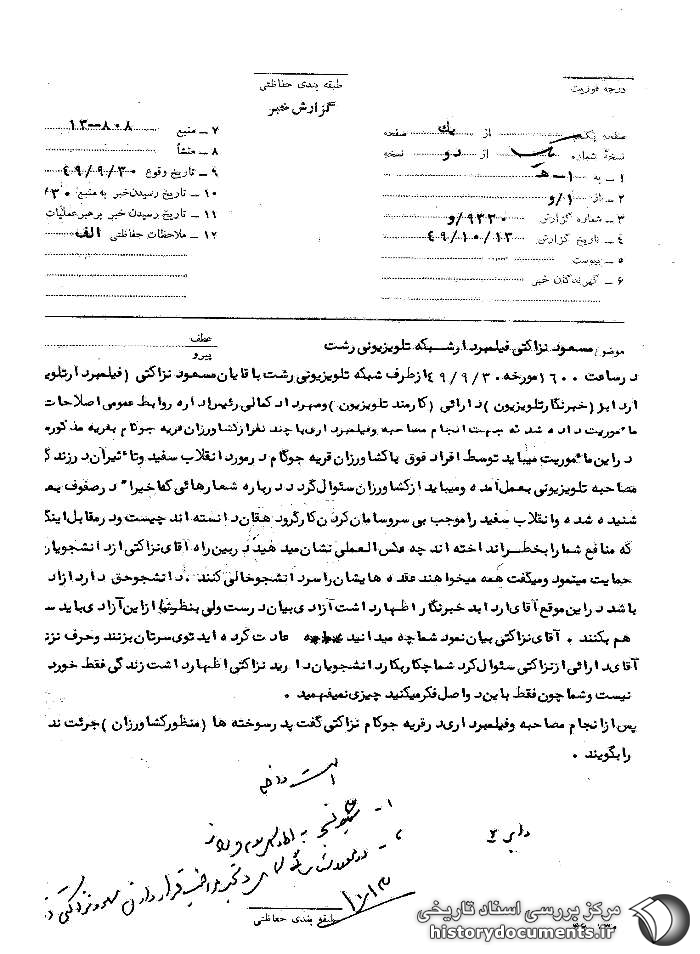 درجه فوریت
طبقه بندی حفاظتی
گزارش خبر
صفحه یک از یک صفحه
نسخهٔ شماره یک از دو نسخه
۱ - به ۱ - هـ
۲ - از ۱/و
۳ - شماره گزارش ۹۲۳۰/و
۴ - تاریخ گزارش ۴۹/۱۰/۱۳
۵ - پیوست
۶ - گیرندگان خبر
۷ - منبع ۸۰۸-۱۳
۸ - منشأ
۹ - تاریخ وقوع ۴۹/۹/۳۰
۱۰ - تاریخ رسیدن خبر به منبع ۳۰/
۱۱ - تاریخ رسیدن خبر برهبر عملیات
۱۲ - ملاحظات حفاظتی الف
موضوع: مسعود نزاکتی فیلمبردار شبکه تلویزیونی رشت
عطف
پیرو
در ساعت ۱۶۰۰ مورخه ۴۹/۹/۳۰ از طرف شبکه تلویزیونی رشت باقایان مسعود نزاکتی (فیلمبردار تلویـ
(خبرنگار تلویزیون) دارائی (کارمند تلویزیون) ومهرداد کمالی رئیس اداره روابط عمومی اصلاحات
مأموریت داده شد که جهت انجام مصاحبه وفیلمبرداری با چند نفر از کشاورزان قریه جوکام بقریه مذکور
در این مأموریت میباید توسط افراد فوق با کشاورزان قریه جوکام در مورد انقلاب سفید وتأثیر آن در زندگ
مصاحبه تلویزیونی بعمل آمده ومیباید از کشاورزان سئوال گردد درباره شعارهائی که اخیراً در صفوف بعـ
شنیده شده وانقلاب سفید را موجب بی سروسامان کردن کارگر ودهقان دانسته اند چیست ودر مقابل اینک
که منافع شما را بخطر انداخته اند چه عکس العملی نشان میدهید در بین راه آقای نزاکتی از دانشجویان
حمایت مینمود ومیگفت همه میخواهند عقده هایشان را سر دانشجو خالی کنند . دانشجو حق دارد آزاد
باشد در این موقع آقای اردابد خبرنگار اظهار داشت آزادی بیان درست ولی بنظر شما از این آزادی باید سـ
هم بکنند . آقای نزاکتی بیان نمود شما چه میدانید عادت کرده اید توی سرتان بزنند وحرف نزنـ
آقای دارائی از نزاکتی سئوال کرد شما چکار بکار دانشجویان دارید نزاکتی اظهار داشت زندگی فقط خورد
نیست وشما چون فقط باین دو اصل فکر میکنید چیزی نمیفهمید .
پس از انجام مصاحبه وفیلمبرداری در قریه جوکام نزاکتی گفت پدرسوخته ها (منظور کشاورزان) جرئت ند
را بگویند .
۱ -
۲ -
طبقه بندی حفاظتی
مرکز بررسی اسناد تاریخی
historydocuments.ir